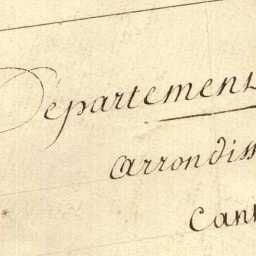 Département
Arrondiss
Can